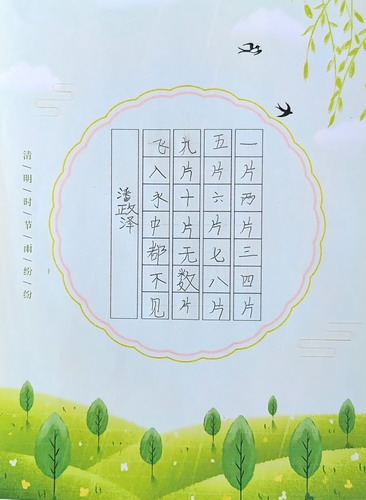 一片两片三四片
五片六片七八片
九片十片无数片
飞入水中都不见
潘政泽
清/明/时/节/雨/纷/纷